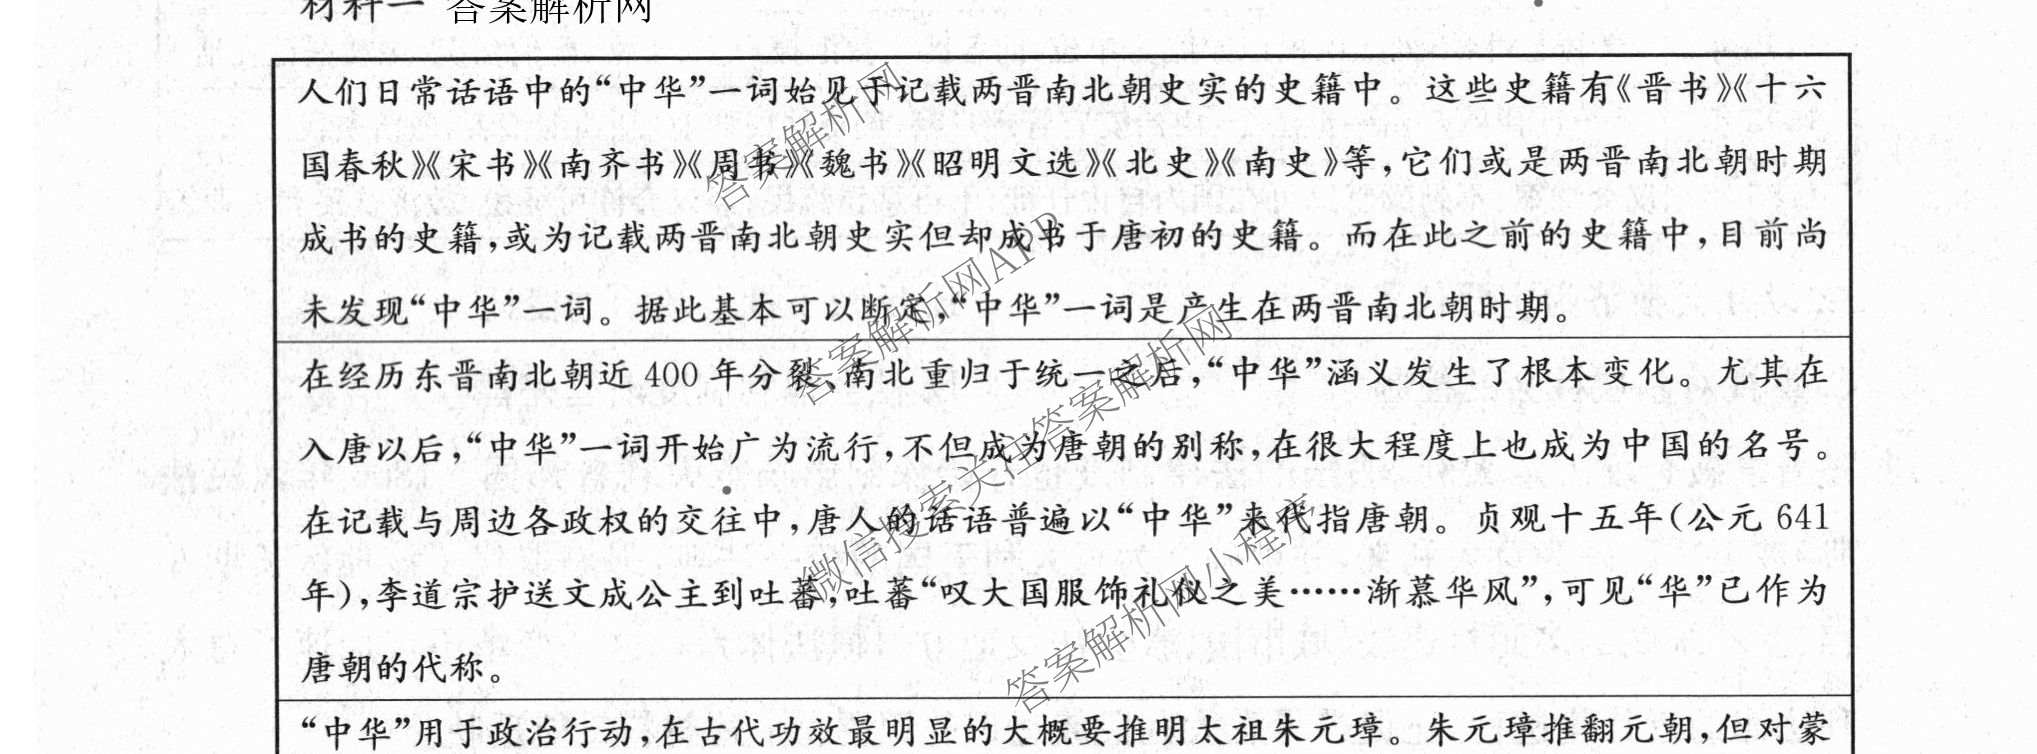 材料一 答案解析网
人们日常话语中的“中华”一词始见于记载两晋南北朝史实的史籍中。这些史籍有《晋书》《十六
国春秋》《宋书》《南齐书》《周书》《魏书》《昭明文选》《北史》《南史》等,它们或是两晋南北朝时期
成书的史籍,或为记载两晋南北朝史实但却成书于唐初的史籍。而在此之前的史籍中,目前尚
未发现“中华”一词。据此基本可以断定,“中华”一词是产生在两晋南北朝时期。
在经历东晋南北朝近 400 年分裂、南北重归于统一之后,“中华”涵义发生了根本变化。尤其在
入唐以后,“中华”一词开始广为流行,不但成为唐朝的别称,在很大程度上也成为中国的名号。
在记载与周边各政权的交往中,唐人的话语普遍以“中华”来代指唐朝。贞观十五年(公元 641
年),李道宗护送文成公主到吐蕃,吐蕃“叹大国服饰礼仪之美……渐慕华风”,可见“华”已作为
唐朝的代称。
“中华”用于政治行动,在古代功效最明显的大概要推明太祖朱元璋。朱元璋推翻元朝,但对蒙
答案解析网
答案解析网APP
微信搜索关注答案解析网
答案解析网小程序